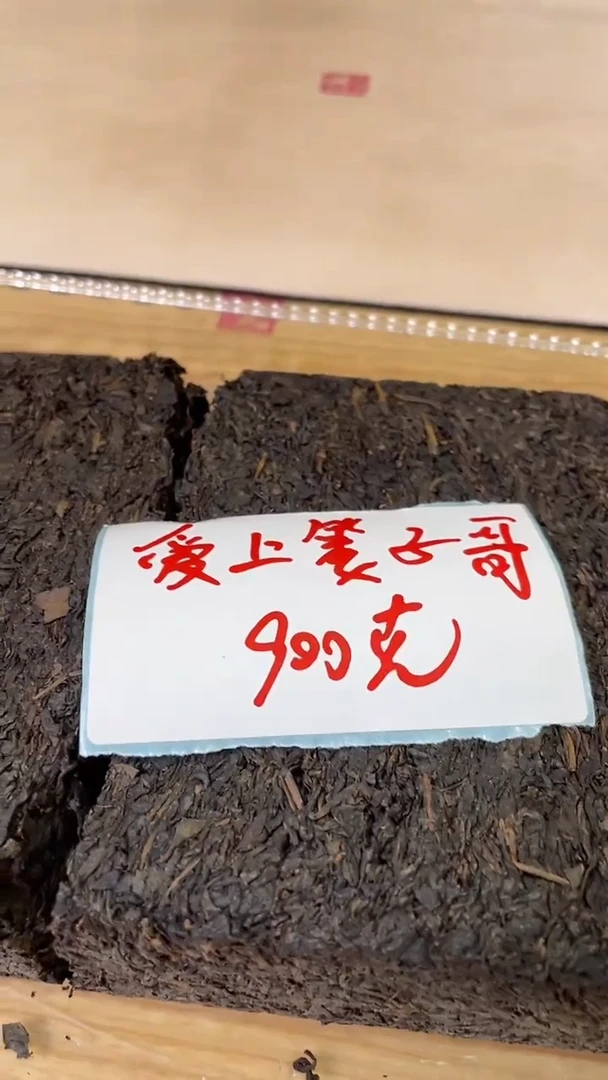 爱上子哥
900克